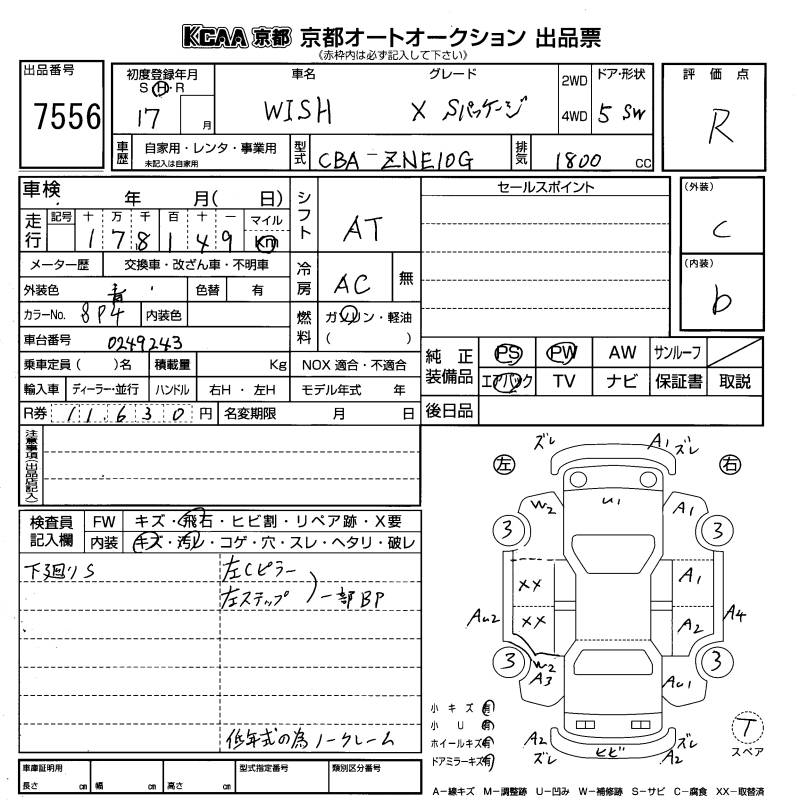 KCAA 京都 京都オートオークション 出品票
(赤枠内は必ず記入して下さい)
出品番号
7556
初度登録年月
S・H・R
17 月
車名 グレード
WISH X Sパッケージ
2WD
4WD
ドア・形状
5 SW
評価点
R
車歴
自家用・レンタ・事業用
未記入は自家用
型式
CBA-ZNE10G
排気
1800 cc
車検 年 月( 日)
走行
記号 十 万 千 百 十 一 マイル
1 7 8 1 4 9 km
メーター歴 交換車・改ざん車・不明車
外装色 青 色替 有
カラーNo. 8P4 内装色
車台番号 0249243
乗車定員( )名 積載量 Kg
輸入車 ディーラー・並行 ハンドル 右H・左H
R券 11,630円 名変期限 月 日
シフト
AT
冷房
AC 無
燃料
ガソリン・軽油
( )
NOX 適合・不適合
モデル年式 年
セールスポイント
(外装)
C
(内装)
b
純正装備品
PS PW AW サンルーフ
エアバック TV ナビ 保証書 取説
後日品
注意事項(出品店記入)
検査員記入欄
FW キズ・飛石・ヒビ割・リペア跡・X要
内装 キズ・汚レ・コゲ・穴・スレ・ヘタリ・破レ
下廻りS
左Cピラー
左ステップ )一部BP
低年式の為ノークレーム
左 右
ズレ A1 ズレ
W2 U1 A1
3 3
XX A1
AU2 XX A2 A4
3 3
W2
A3 AU1
小キズ有
小U有
ホイールキズ有
ドアミラーキズ有
A2 ズレ ヒビ A2 ズレ
T
スペア
車庫証明用
長さ cm 幅 cm 高さ cm
型式指定番号 類別区分番号
A−線キズ M−調整跡 U−凹み W−補修跡 S−サビ C−腐食 XX−取替済